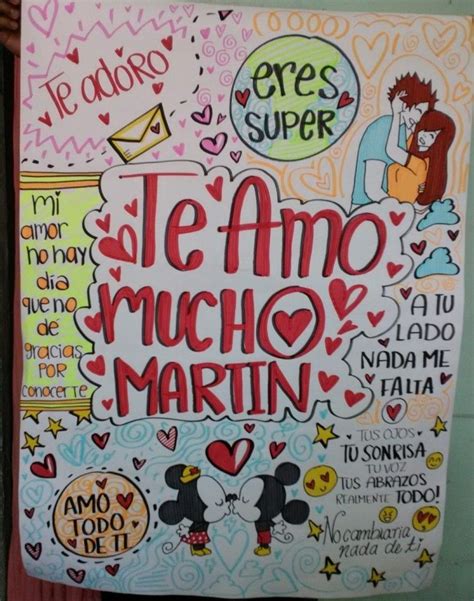 Te adoro
eres
SUPER
mi
amor
no hay
dia
que no
de
gracias
POR
conocerte
Te Amo
MUCHO
MARTIN
A TU
LADO
NADA ME
FALTA
TUS OJOS
TU SONRISA
TU VOZ
TUS ABRAZOS
REALMENTE TODO!
No cambiaria
nada de ti
AMO
TODO
DE TI